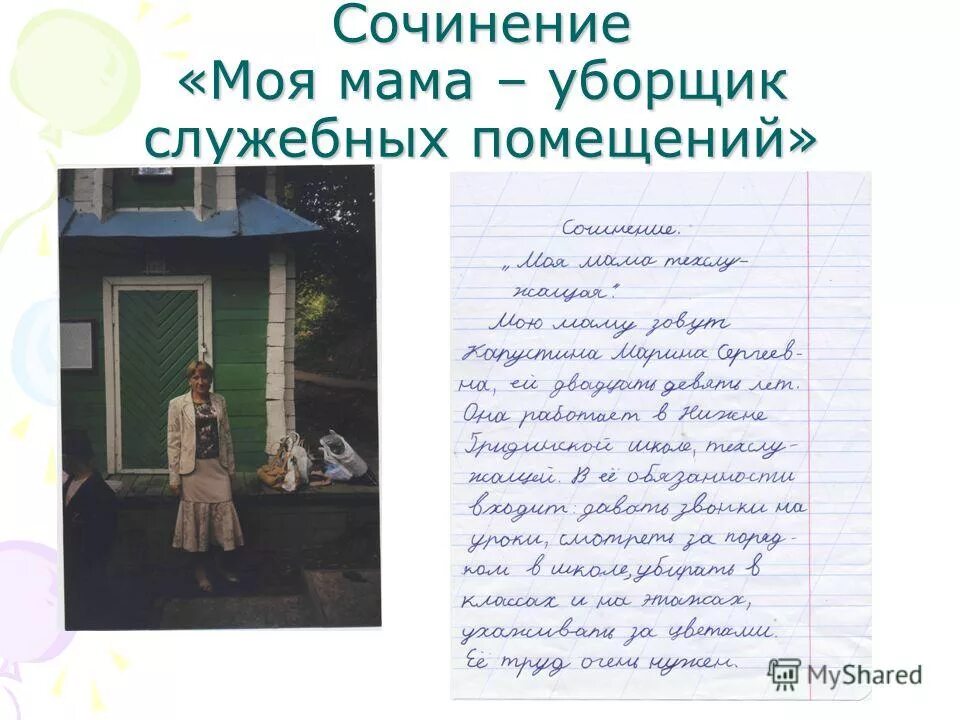 Сочинение
«Моя мама – уборщик
служебных помещений»
Сочинение.
„Моя мама техслу-
жащая".
Мою маму зовут
Капустина Марина Сергеев-
на, ей двадцать девять лет.
Она работает в Нижне
Гридинской школе, техслу-
жащей. В её обязанности
входит: давать звонки на
уроки, смотреть за поряд-
ком в школе, убирать в
классах и на этажах,
ухаживать за цветами.
Её труд очень нужен.
MyShared